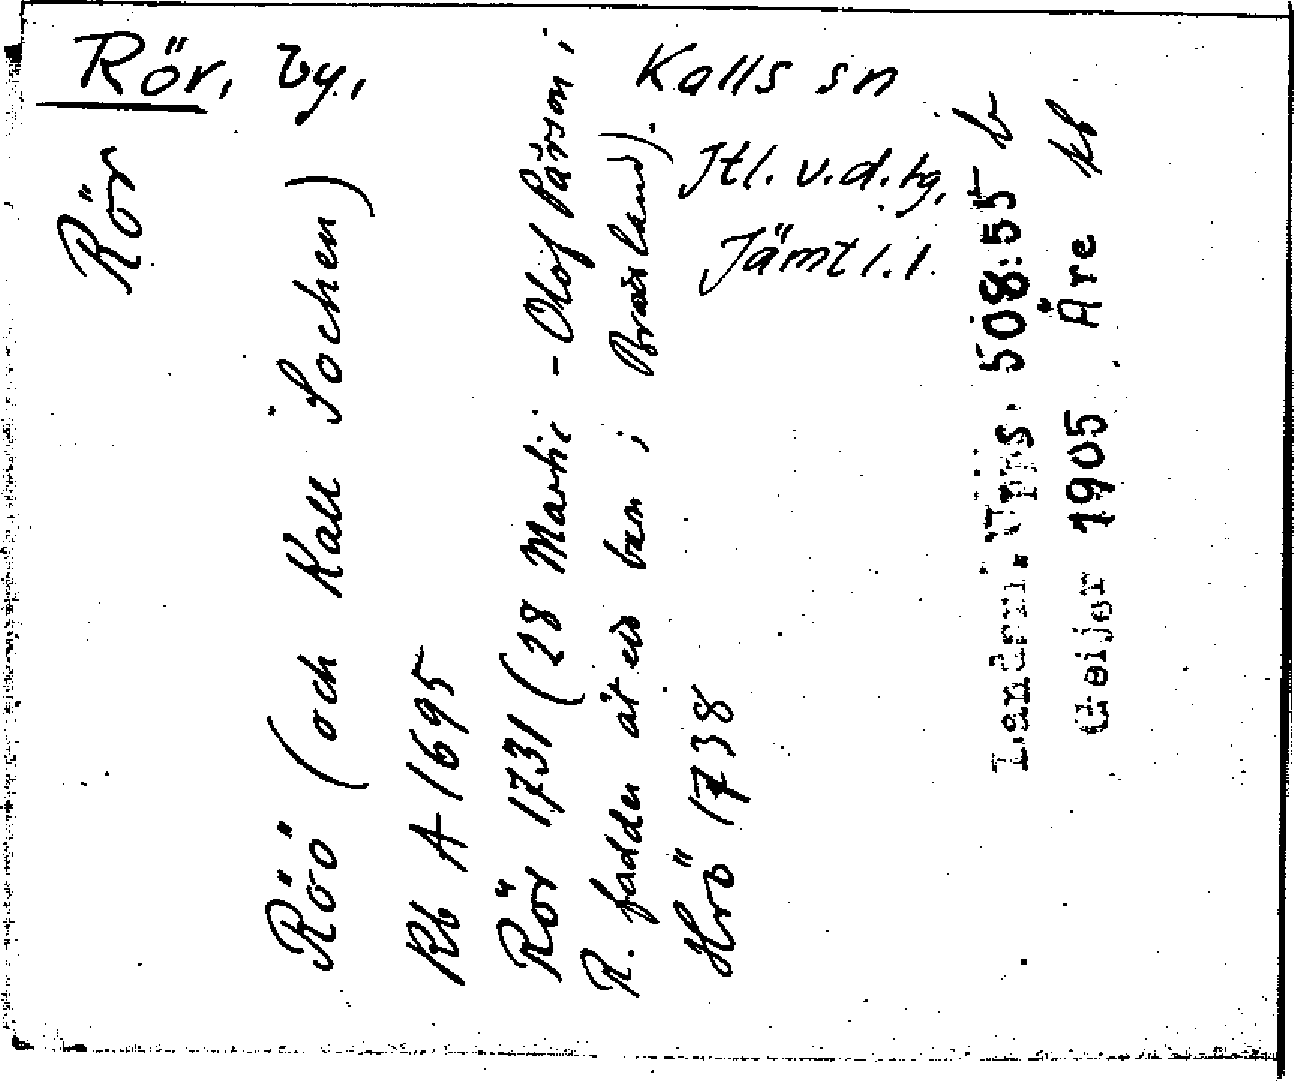 Rör, by,
Kalls sn
Jtl. v. d. tg,
Jämtl. l.
Rör
Röö (och Kall Sochen)
Rb A 1695
Rör 1731 (28 Martii - Olof Pärson i
R. fadder åt ett barn i Brattland).
Hrö 1738
Landsm. Upps. 508:55 b
Geijer 1905 Åre kb